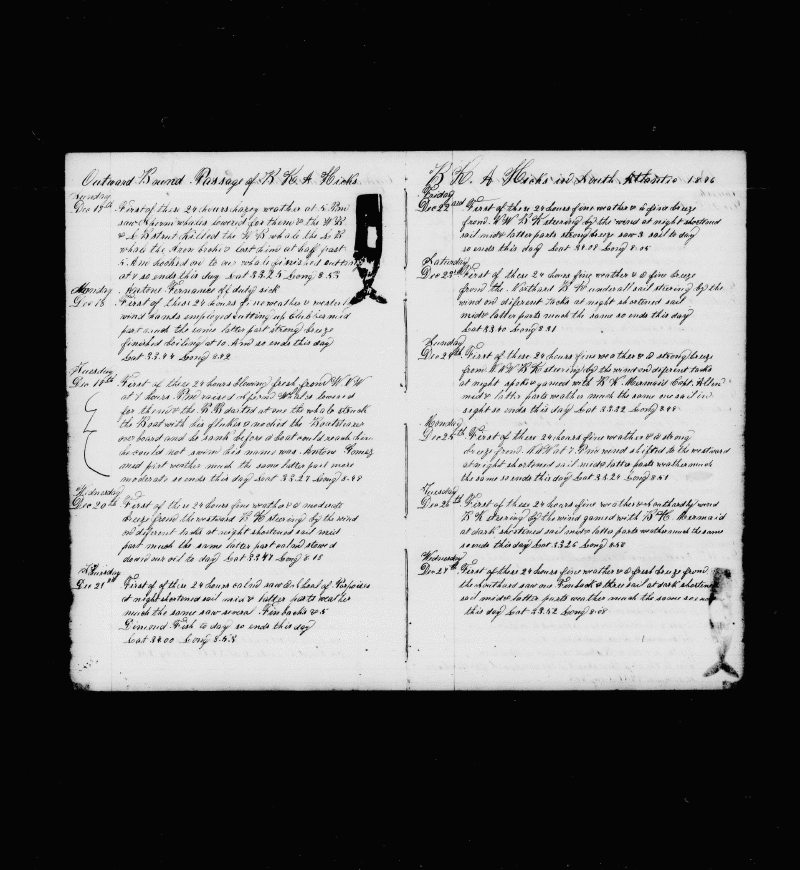 Outward Bound Passage of B K A Hicks
Sunday
Dec 17th First of these 24 hours hazey weather at 5 Pm
saw Sperm whales lowered for them & the W B
& L B struck killed the W B whale the L B
whale the Iron broke & lost him at half past
5 Am hooked on to one whale finished cutting
at so ends this day Lat 33.25 Long 8.53
Monday Antone Fernance off duty sick
Dec 18 First of these 24 hours fine weather & westerly
wind hands employed cutting up Blubber mid
part much the same latter part strong breeze
finished boiling at 10 Am so ends this day
Lat 33.44 Long 8.32
Tuesday
Dec 19th First of these 24 hours blowing fresh from W N W
at 1 hours Pm raised Sperm Whales lowered
for them & the B B darted at one the whale struck
the Boat with his flukes nocked the Boatsteerer
over board and he sank before a boat could reach him
he could not swim his name was Antone Gomez
and first weather much the same latter part more
moderate so ends this day Lat 33.27 Long 8.49
Wednesday
Dec 20th First of these 24 hours fine weather & a moderate
breeze from the westward B H steering by the wind
on diferent tacks at night shortened sail mid
part much the same latter part calm stowed
down our oil to day Lat 33.47 Long 8.18
Thursday
Dec 21st First of of these 24 hours calm saw a School of Porpoises
at night shortened sail mid & latter parts weather
much the same saw several Finbacks & 5
Dimond Fish to day so ends this day
Lat 34.00 Long 8.53
B K A Hicks in South Atlantic
Friday
Dec 22nd First of these 24 hours fine weather & a fine breeze
from B H steering by the wind at night shortened
sail mid & latter parts strong breeze saw a sail to day
so ends this day Lat 34.08 Long 8.05
Saturday
Dec 23rd First of these 24 hours fine weather & a fine breeze
from the Northard B H under all sail steering by the
wind on diferent tacks at night shortened sail
mid & latter parts much the same so ends this day
Lat 33.40 Long 8.31
Sunday
Dec 24th First of these 24 hours fine weather & a strong breeze
from W N W B H steering by the wind on diferent tacks
at night spoke & gamed with B K Mermaid Capt Allen
mid & latter parts weather much the same one sail in
sight so ends this day Lat 33.22 Long
Monday
Dec 25th First of these 24 hours fine weather & a strong
breeze from at 7 Pm wind shifted to the westward
at night shortened sail mid & latter parts weather much
the same so ends this day Lat 33.29 Long 8.51
Tuesday
Dec 26th First of these 24 hours fine weather & a Northardly wind
B H steering by the wind gamed with B K Mermaid
at dark shortened sail mid & latter parts weather much the same
so ends this day Lat 33.26 Long 8.50
Wednesday
Dec 27th First of these 24 hours fine weather & a fresh breeze from
the Northard saw one Finback & three sail at dark shortened
sail mid & latter parts weather much the same so ends
this day Lat 33.52 Long 8.08